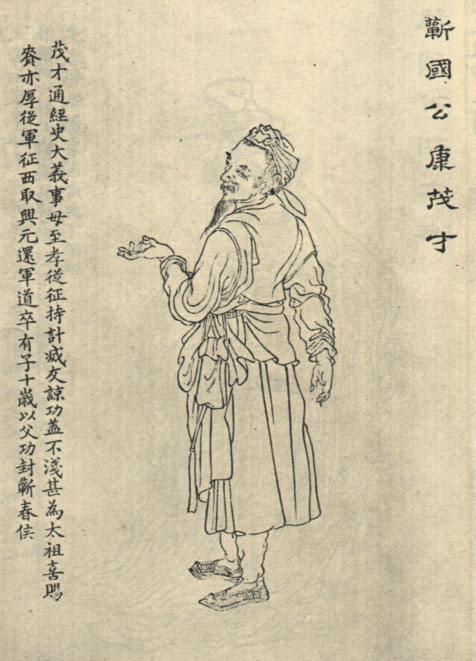 蘄國公康茂才
茂才通經史大義事母至孝從征持計㓕友諒功蓋不淺甚為太祖喜賜
賚亦厚從軍征西取興元還軍道卒有子十歲以父功封蘄春侯